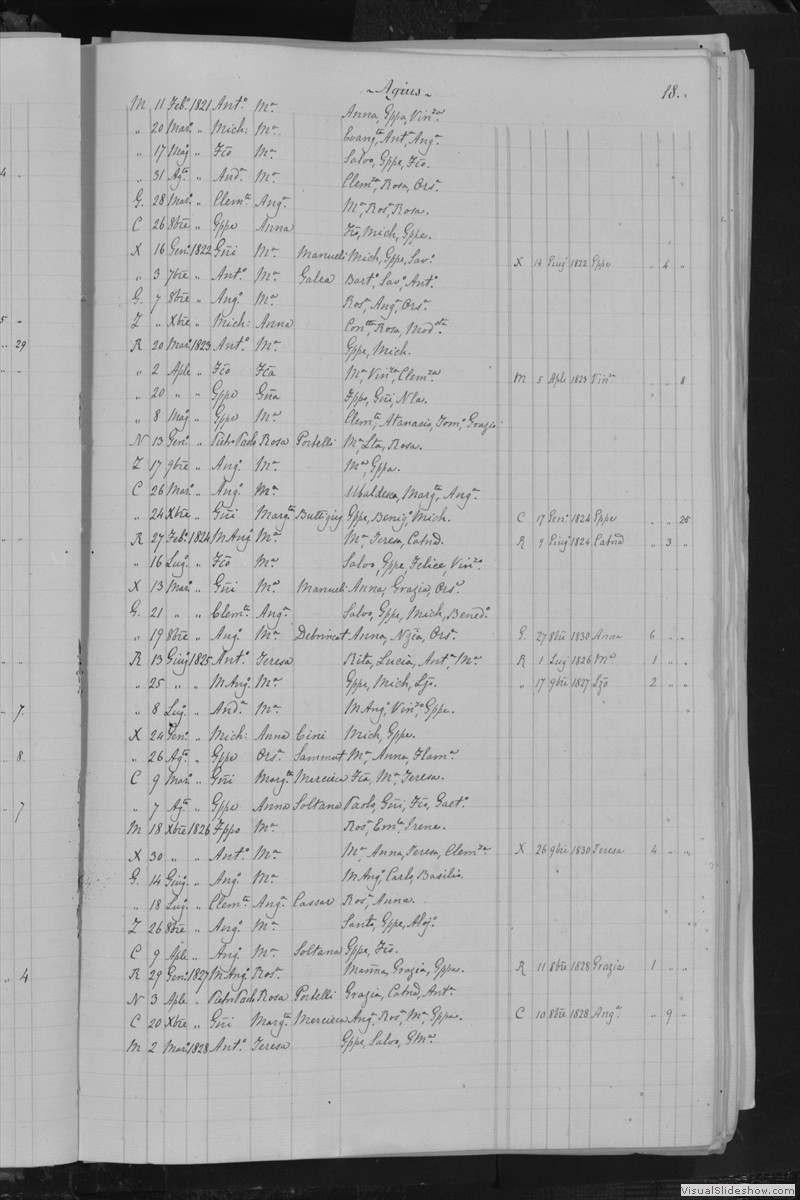 ~ Agius ~ 18.
M 11 Feb.º 1821 Ant.º M.ª Anna, Gppa, Vin.za
" 20 Mar.º " Mich: M.ª Evang.ta, Ant.ª, Ang.ª
" 17 Mag.º " Fco M.ª Salvo, Gppe, Fco.
" 31 Ag.to " And.ª M.ª Clem.za, Rosa, Ors.ª
G. 28 Mar.º " Clem.te Ang.ª M.ª, Ros.ª, Rosa.
C 26 8bre " Gppe Anna Fco, Mich, Gppe.
X 16 Gen.º 1822 Gñi M.ª Manueli Mich, Gppe, Sav.º X 14 Giug.º 1822 Gppe " 4 "
" 3 7bre " Ant.º M.ª Galea Bart.º, Sav.º, Ant.º
G. 7 8bre " Ang.º M.ª Ros.ª, Ang.ª, Ors.ª
Z " Xbre " Mich: Anna Con.tta, Rosa, Mod.sta
R 20 Mar.º 1823 Ant.º M.ª Gppe, Mich.
" 2 Aple " Fco Fca M.ª, Vin.za, Clem.za M 5 Aple 1823 Vin.za " " 8
" 20 " " Gppe Gña Fppo, Gñi, Nla.
" 8 Mag.º " Gppe M.ª Clem.te, Atanasio, Tom.º, Grazio
N 13 Gen.º " Pietro Paolo Rosa Portelli M.ª, Lta, Rosa.
Z 17 9bre " Ang.º M.ª M.ª, Gppa.
C 26 Mar.º " Ang.º M.ª Ubaldesca, Marg.ta, Ang.ª
" 24 Xbre " Gñi Marg.ta Buttigieg Gppe, Benig.º, Mich. C 17 Gen.º 1824 Gppe " " 25
R 27 Feb.º 1824 M Ang.º M.ª M.ª, Teresa, Catnd. R 9 Giug.º 1824 Catnd " 3 "
" 16 Lug.º " Fco M.ª Salvo, Gppe, Felice, Vin.zo
X 13 Mar.º " Gñi M.ª Manueli Anna, Grazia, Ors.ª
G. 21 " " Clem.te Ang.ª Salvo, Gppe, Mich, Bened.º
" 19 8bre " Ang.º M.ª Debrincat Anna, Nzia, Ors.ª G. 27 8bre 1830 Anna 6 " "
R 13 Giug.º 1825 Ant.º Teresa Rita, Lucia, Ant.ª, M.ª R 1 Lug.º 1826 M.ª 1 " "
" 25 " " M Ang.º M.ª Gppe, Mich, Lzo. " 17 9bre 1827 Lzo 2 " "
" 8 Lug.º " And.ª M.ª M Ang.º, Vin.zo, Gppe.
X 24 Gen.º " Mich: Anna Cini Mich, Gppe.
" 26 Ag.to " Gppe Ors.ª Sammut M.ª, Anna, Flam.ª
C 9 Mar.º " Gñi Marg.ta Mercieca Fca, M.ª, Teresa.
" 7 Ag.to " Gppe Anna Soltana Paolo, Gñi, Fco, Gaet.º
M 18 Xbre 1826 Fppo M.ª Ros.ª, Em.la, Irena.
X 30 " " Ant.º M.ª M.ª, Anna, Teresa, Clem.za X 26 9bre 1830 Teresa 4 " "
G. 14 Giug.º " Ang.º M.ª M Ang.º, Carlo, Basilio.
" 18 Lug.º " Clem.te Ang.ª Cassar Ros.ª, Anna.
Z 26 8bre " Ang.º M.ª Santo, Gppe, Aloj.º
C 9 Aple " Ang.º M.ª Soltana Gppe, Fco.
R 29 Gen.º 1827 M Ang.º Ros.ª Marina, Grazia, Gppa. R 11 8bre 1828 Grazia 1 " "
N 3 Aple " Pietro Paolo Rosa Portelli Grazia, Catnd, Ant.ª
C 20 Xbre " Gñi Marg.ta Mercieca Ang.ª, Ros.ª, M.ª, Gppa. C 10 8bre 1828 Ang.ª " 9 "
M 2 Mar.º 1828 Ant.º Teresa Gppe, Salvo, GM.ª
4 "
5 "
" 29
" "
" "
" "
" 7.
" 8.
" 7
" 4
VisualSlideshow.com